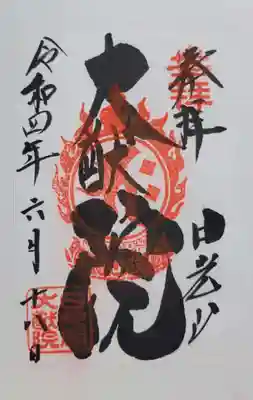 奉拝
日光山
大猷院
令和四年六月十八日